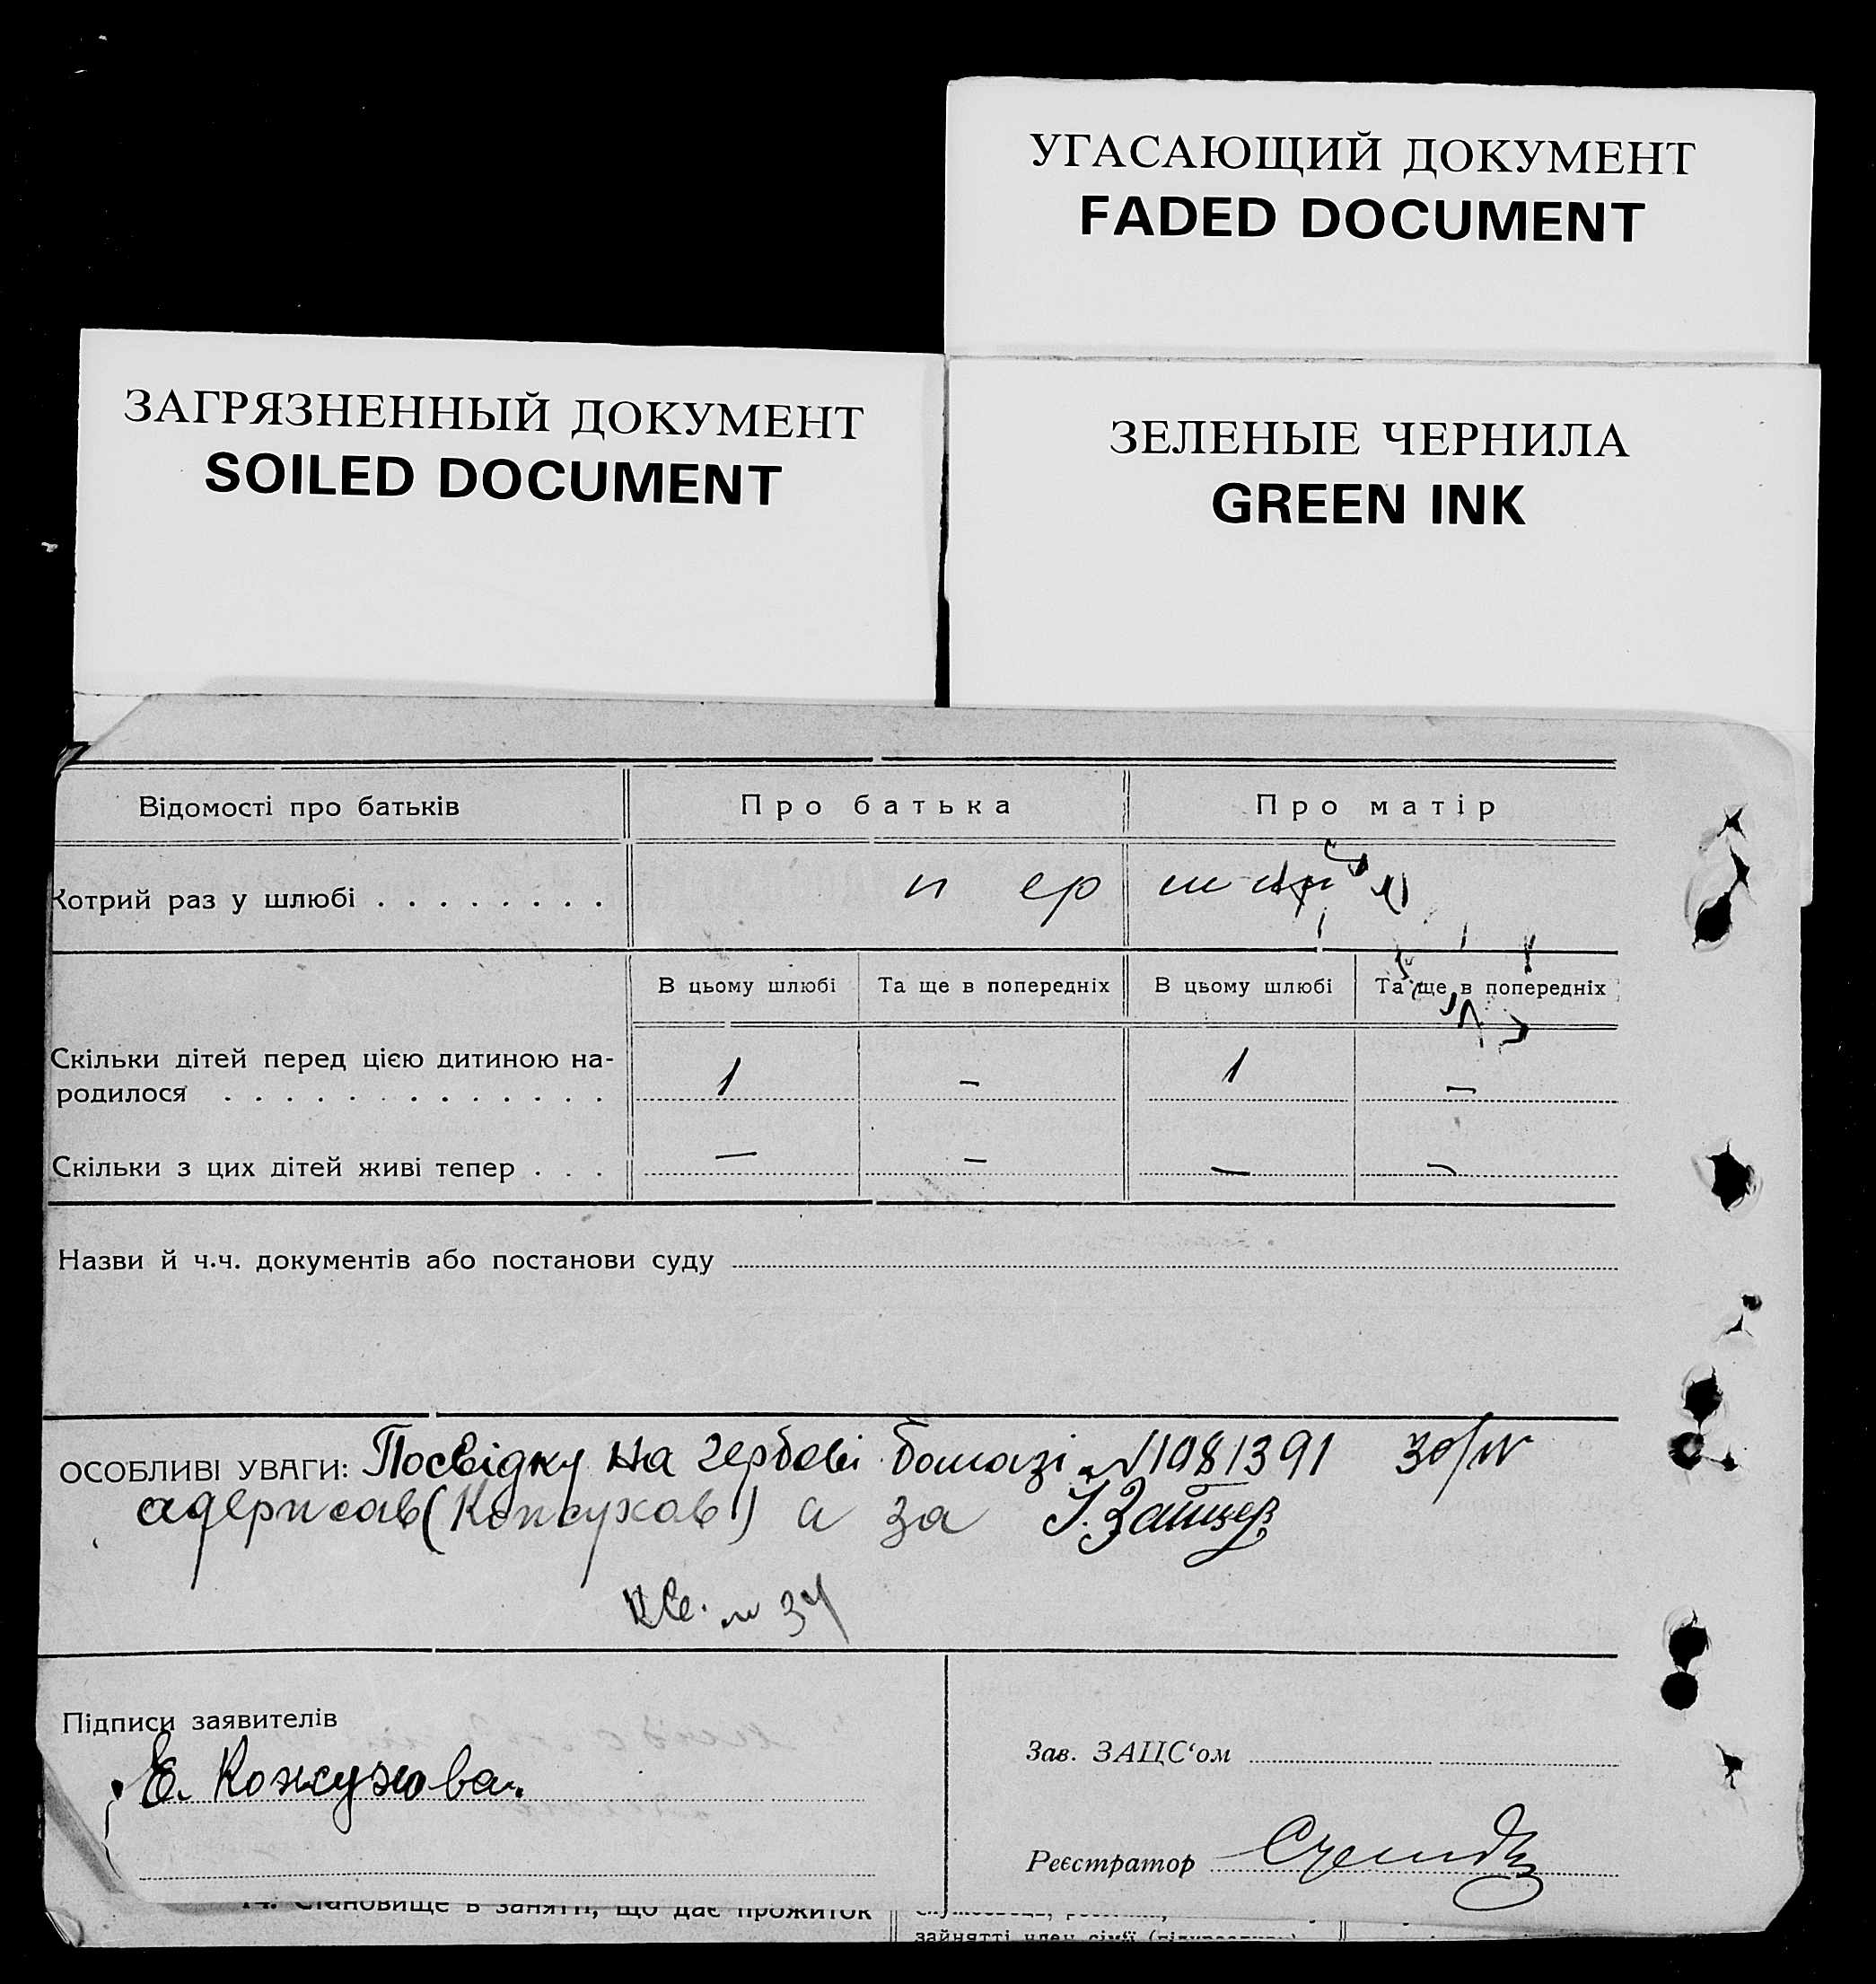 УГАСАЮЩИЙ ДОКУМЕНТ
FADED DOCUMENT
ЗАГРЯЗНЕННЫЙ ДОКУМЕНТ
SOILED DOCUMENT
ЗЕЛЕНЫЕ ЧЕРНИЛА
GREEN INK
Відомості про батьків Про батька Про матір
Котрий раз у шлюбі . . . . . . . . п ер ш ий
В цьому шлюбі Та ще в попередніх В цьому шлюбі Та ще в попередніх
Скільки дітей перед цією дитиною на-
родилося . . . . . . . . . . . . . 1 – 1 –
Скільки з цих дітей живі тепер . . . – – – –
Назви й ч.ч. документів або постанови суду
ОСОБЛИВІ УВАГИ: Посвідку на гербові бомазі № 1081391 30/IV
адержав (Кожухов) а за І. Зайцев
Кв. № 34
Підписи заявителів
Е. Кожухова.
Зав. ЗАЦС‘ом
Реєстратор
14. Становище в занятті, що дає прожиток
зайнятті член сім'ї